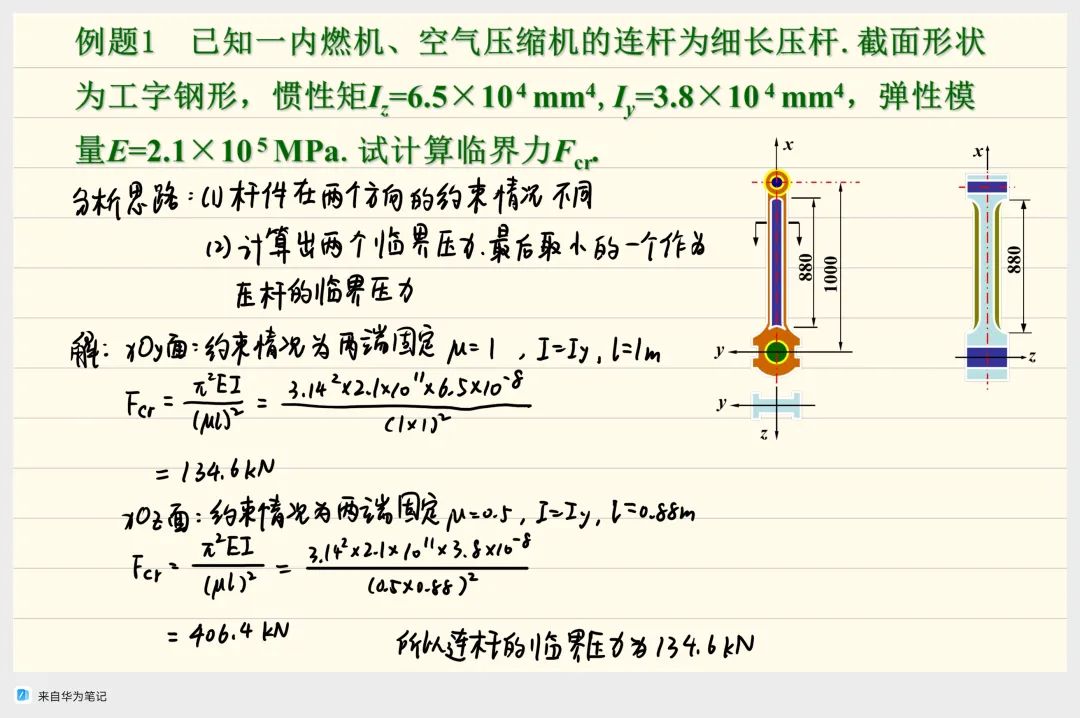 例题1 已知一内燃机、空气压缩机的连杆为细长压杆. 截面形状
为工字钢形，惯性矩Iz=6.5×10⁴ mm⁴, Iy=3.8×10⁴ mm⁴，弹性模
量E=2.1×10⁵ MPa. 试计算临界力Fcr.
分析思路：(1) 杆件在两个方向的约束情况不同
(2) 计算出两个临界压力.最后取小的一个作为
压杆的临界压力
解：xOy面：约束情况为两端固定 μ=1 , I=Iy, l=1m
Fcr = π²EI/(μl)² = 3.14²×2.1×10¹¹×6.5×10⁻⁸/(1×1)²
= 134.6kN
xOz面：约束情况为两端固定 μ=0.5 , I=Iy, l=0.88m
Fcr = π²EI/(μl)² = 3.14²×2.1×10¹¹×3.8×10⁻⁸/(0.5×0.88)²
= 406.4 kN
所以连杆的临界压力为134.6kN
x
880
1000
y
y
z
x
880
z
来自华为笔记